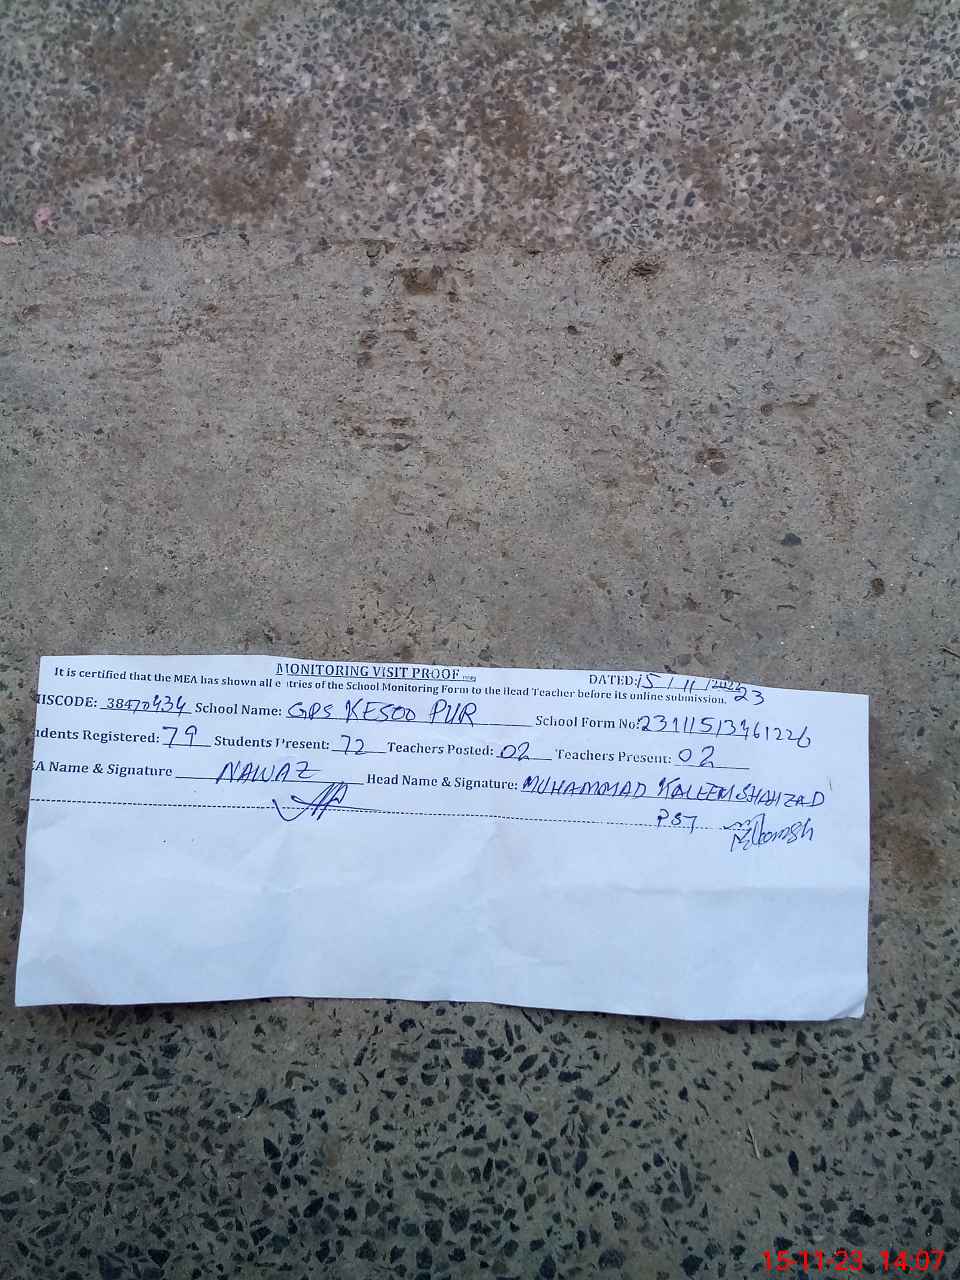 MONITORING VISIT PROOF
DATED: 15/11/2023
It is certified that the MEA has shown all entries of the School Monitoring Form to the Head Teacher before its online submission.
MISCODE: 38470434 School Name: GPS KESOO PUR School Form No: 23111513461226
udents Registered: 79 Students Present: 72 Teachers Posted: 02 Teachers Present: 02
EA Name & Signature NAWAZ Head Name & Signature: MUHAMMAD KALEEM SHAHZAD
PST
15-11-23 14:07